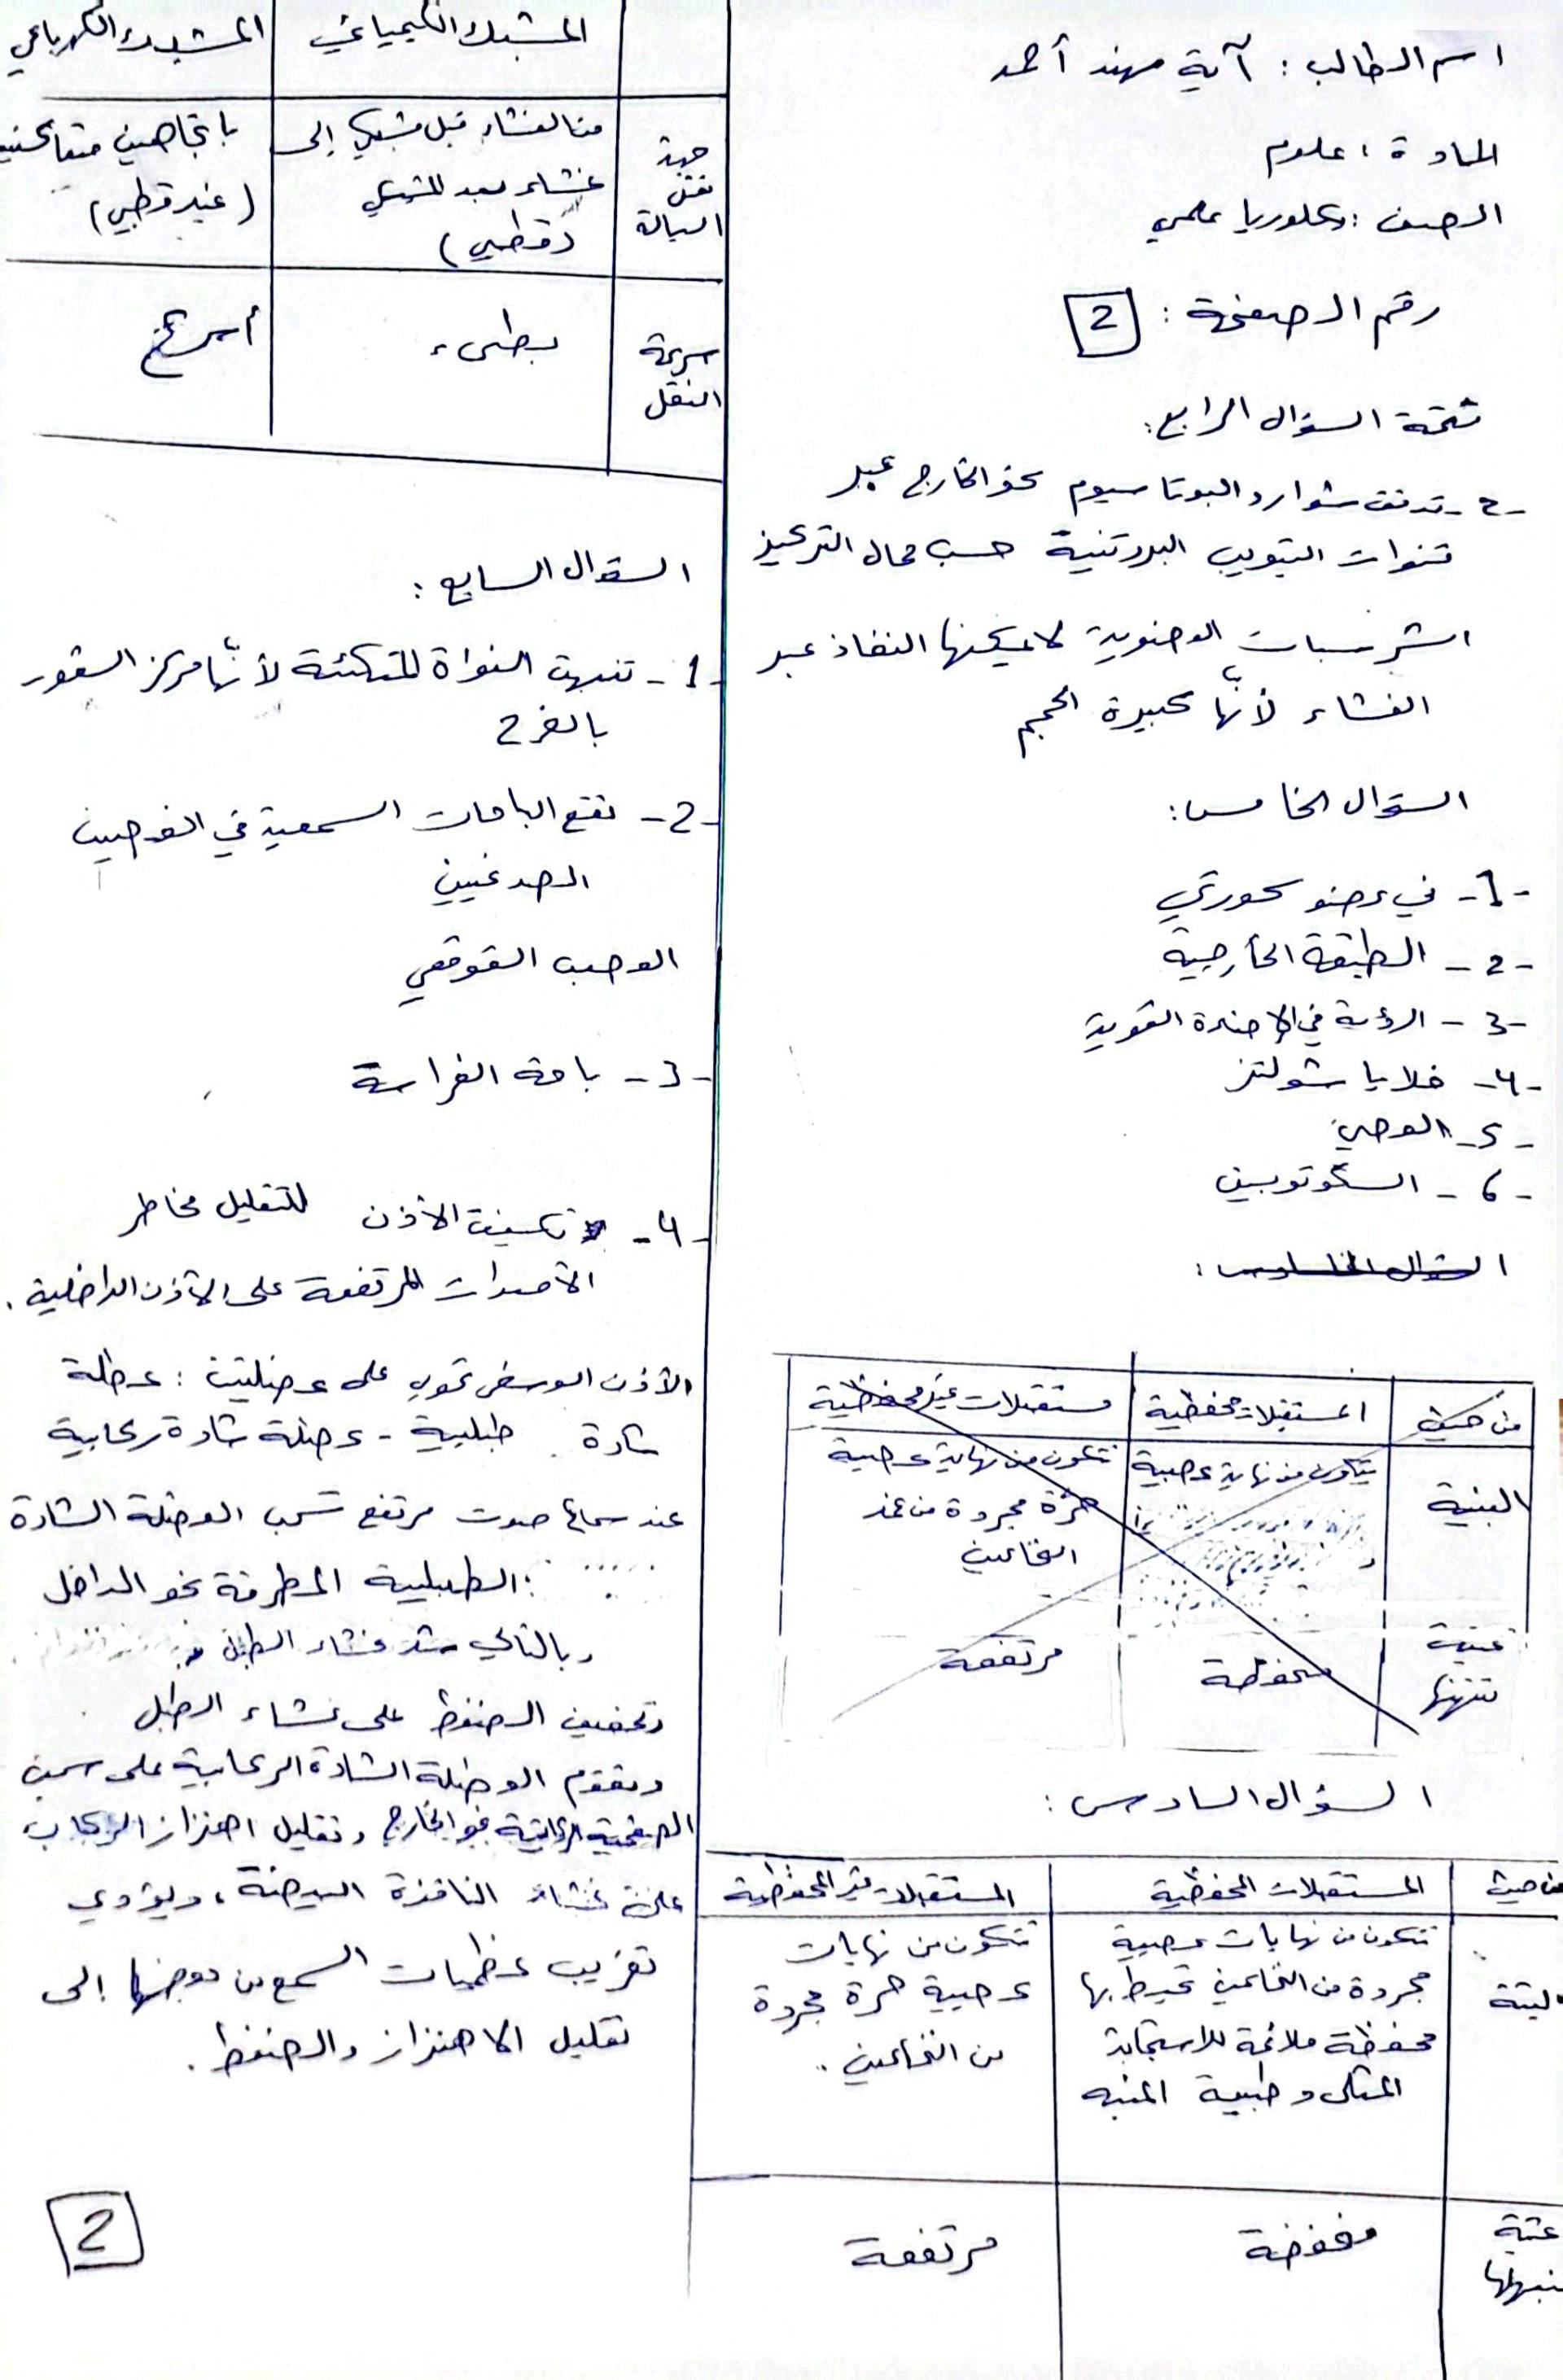 اسم الطالب : آية مهند أحمد
المادة : علوم
الصف : بكلوريا علمي
رقم الصفحة : 2
تتمة السؤال الرابع :
-2- تدفق شوارد البوتاسيوم نحو الخارج عبر
قنوات التبويب البروتينية حسب ممال التركيز
الشرسبات العضوية لا يمكنها النفاذ عبر
الغشاء لأنّها كبيرة الحجم
السؤال الخامس :
-1- في عضو كورتي
-2- الطبقة الخارجية
-3- الرؤية في الإضاءة القوية
-4- خلايا شولتز
-5- العصي
-6- السكوتوبسين
السؤال الخامس :
من حيث | المستقبلات محفظية | مستقبلات غير محفظية
البنية | يتكون من نهاية عصبية | تتكون من نهاية عصبية
حرة مجردة من غمد
النخاعين
عتبة تنبهها | محفوظة | مرتفعة
السؤال السادس :
من حيث | المستقبلات المحفظية | المستقبلات غير المحفظية
تتكون من نهايات عصبية | تتكون من نهايات
مجردة من النخاعين تحيط بها | عصبية حرة مجردة
محفظة ملائمة للاستجابة | من النخاعين .
المثلى وطبيعة المنبه
عتبة تنبهها | منخفضة | مرتفعة
المشبك الكيميائي | المشبك الكهربائي
جهة نقل السيالة | من الغشاء قبل مشبكي إلى | باتجاهين متعاكسين
غشاء بعد المشبكي | (غير قطبي)
(قطبي)
سرعة النقل | بطيء | أسرع
السؤال السابع :
-1- تنبهت النواة المتكئة لأنّها مركز السعور
بالفرح
-2- تقع الباحات السمعية في الفصين
الصدغيين
العصب القوقعي
-3- باحة الفراسة
-4- تكييف الأذن للتقليل مخاطر
الأصوات المرتفعة على الأذن الداخلية .
الأذن الوسطى تحوي على عضلتين : عضلة
شادة طبلية - عضلة شادة ركابية
عند سماع صوت مرتفع تسحب العضلة الشادة
الطبلية المطرقة نحو الداخل
وبالتالي شد غشاء الطبل
وتخفيف الضغط على غشاء الطبل
وتقوم العضلة الشادة الركابية على سحب
الصفيحة الركابية نحو الخارج وتقليل اهتزاز الركاب
على غشاء النافذة البيضية ، ويؤدي
تقريب عظيمات السمع من بعضها إلى
تقليل الاهتزاز والضغط .
2